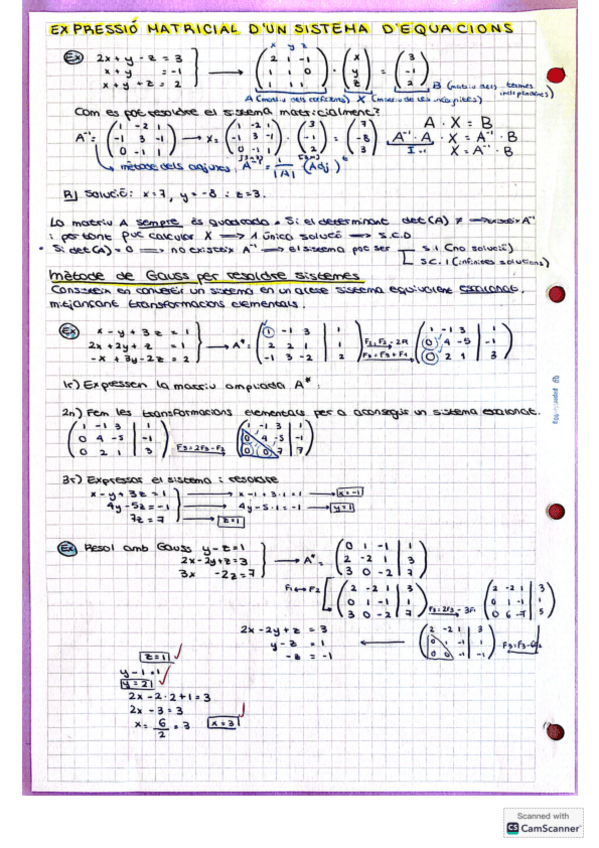 EXPRESSIÓ MATRICIAL D'UN SISTEMA D'EQUACIONS
Ex 2x + y - z = 3
x + y = -1
x + y + z = 2
x y z
( 2 1 -1 ) ( x ) ( 3 )
( 1 1 0 ) · ( y ) = ( -1 )
( 1 1 1 ) ( z ) ( 2 )
A (matriu dels coeficients) X (matriu de les incògnites) B (matriu dels termes independents)
Com es pot resoldre el sistema matricialment?
A · X = B
A⁻¹ · A · X = A⁻¹ · B
I X = A⁻¹ · B
A⁻¹ = ( 1 -2 1 ) → X = ( 1 -2 1 ) · ( 3 ) = ( 7 )
( -1 3 -1 ) ( -1 3 -1 ) ( -1 ) ( -8 )
( 0 -1 1 ) ( 0 -1 1 ) ( 2 ) ( 3 )
mètode dels adjunts, A⁻¹ = 1/|A| (Adj)ᵗ
R) Solució: x = 7, y = -8 i z = 3.
La matriu A sempre és quadrada • Si el determinant det(A) ≠
i per tant puc calcular X → 1 única solució → S.C.D
• Si det(A) = 0 → no existeix A⁻¹ → el sistema pot ser
S.I (no solució)
S.C.I (infinites solucions)
Mètode de Gauss per resoldre sistemes
Consisteix en convertir un sistema en un altre sistema equivalent escalonat,
mitjançant transformacions elementals.
Ex x - y + 3z = 1
2x + 2y + z = 1
-x + 3y - 2z = 2
→ A* = ( 1 -1 3 | 1 )
( 2 2 1 | 1 )
( -1 3 -2 | 2 )
F2=F2-2F1
F3=F3+F1
( 1 -1 3 | 1 )
( 0 4 -5 | -1 )
( 0 2 1 | 3 )
1r) Expressem la matriu ampliada A*.
2n) Fem les transformacions elementals per a aconseguir un sistema escalonat.
( 1 -1 3 | 1 )
( 0 4 -5 | -1 )
( 0 2 1 | 3 )
F3=2F3-F2
( 1 -1 3 | 1 )
( 0 4 -5 | -1 )
( 0 0 7 | 7 )
3r) Expressar el sistema i resoldre
x - y + 3z = 1 → x - 1 + 3·1 = 1 → x = -1
4y - 5z = -1 → 4y - 5·1 = -1 → y = 1
7z = 7 → z = 1
Ex Resol amb Gauss y - z = 1
2x - 2y + z = 3
3x - 2z = 7
→ A* = ( 0 1 -1 | 1 )
( 2 -2 1 | 3 )
( 3 0 -2 | 7 )
F1↔F2
( 2 -2 1 | 3 )
( 0 1 -1 | 1 )
( 3 0 -2 | 7 )
F3=2F3-3F1
( 2 -2 1 | 3 )
( 0 1 -1 | 1 )
( 0 6 -7 | 5 )
F3=F3-6F2
( 2 -2 1 | 3 )
( 0 1 -1 | 1 )
( 0 0 -1 | -1 )
2x - 2y + z = 3
y - z = 1
-z = -1
z = 1
y - 1 = 1
y = 2
2x - 2·2 + 1 = 3
2x - 3 = 3
x = 6/2 = 3
x = 3
Scanned with
CS CamScanner